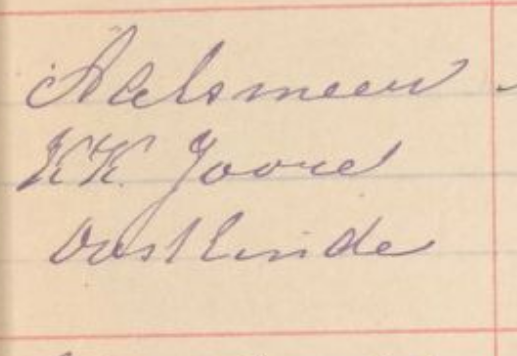 Aalsmeer
KK. Joord
Oosteinde